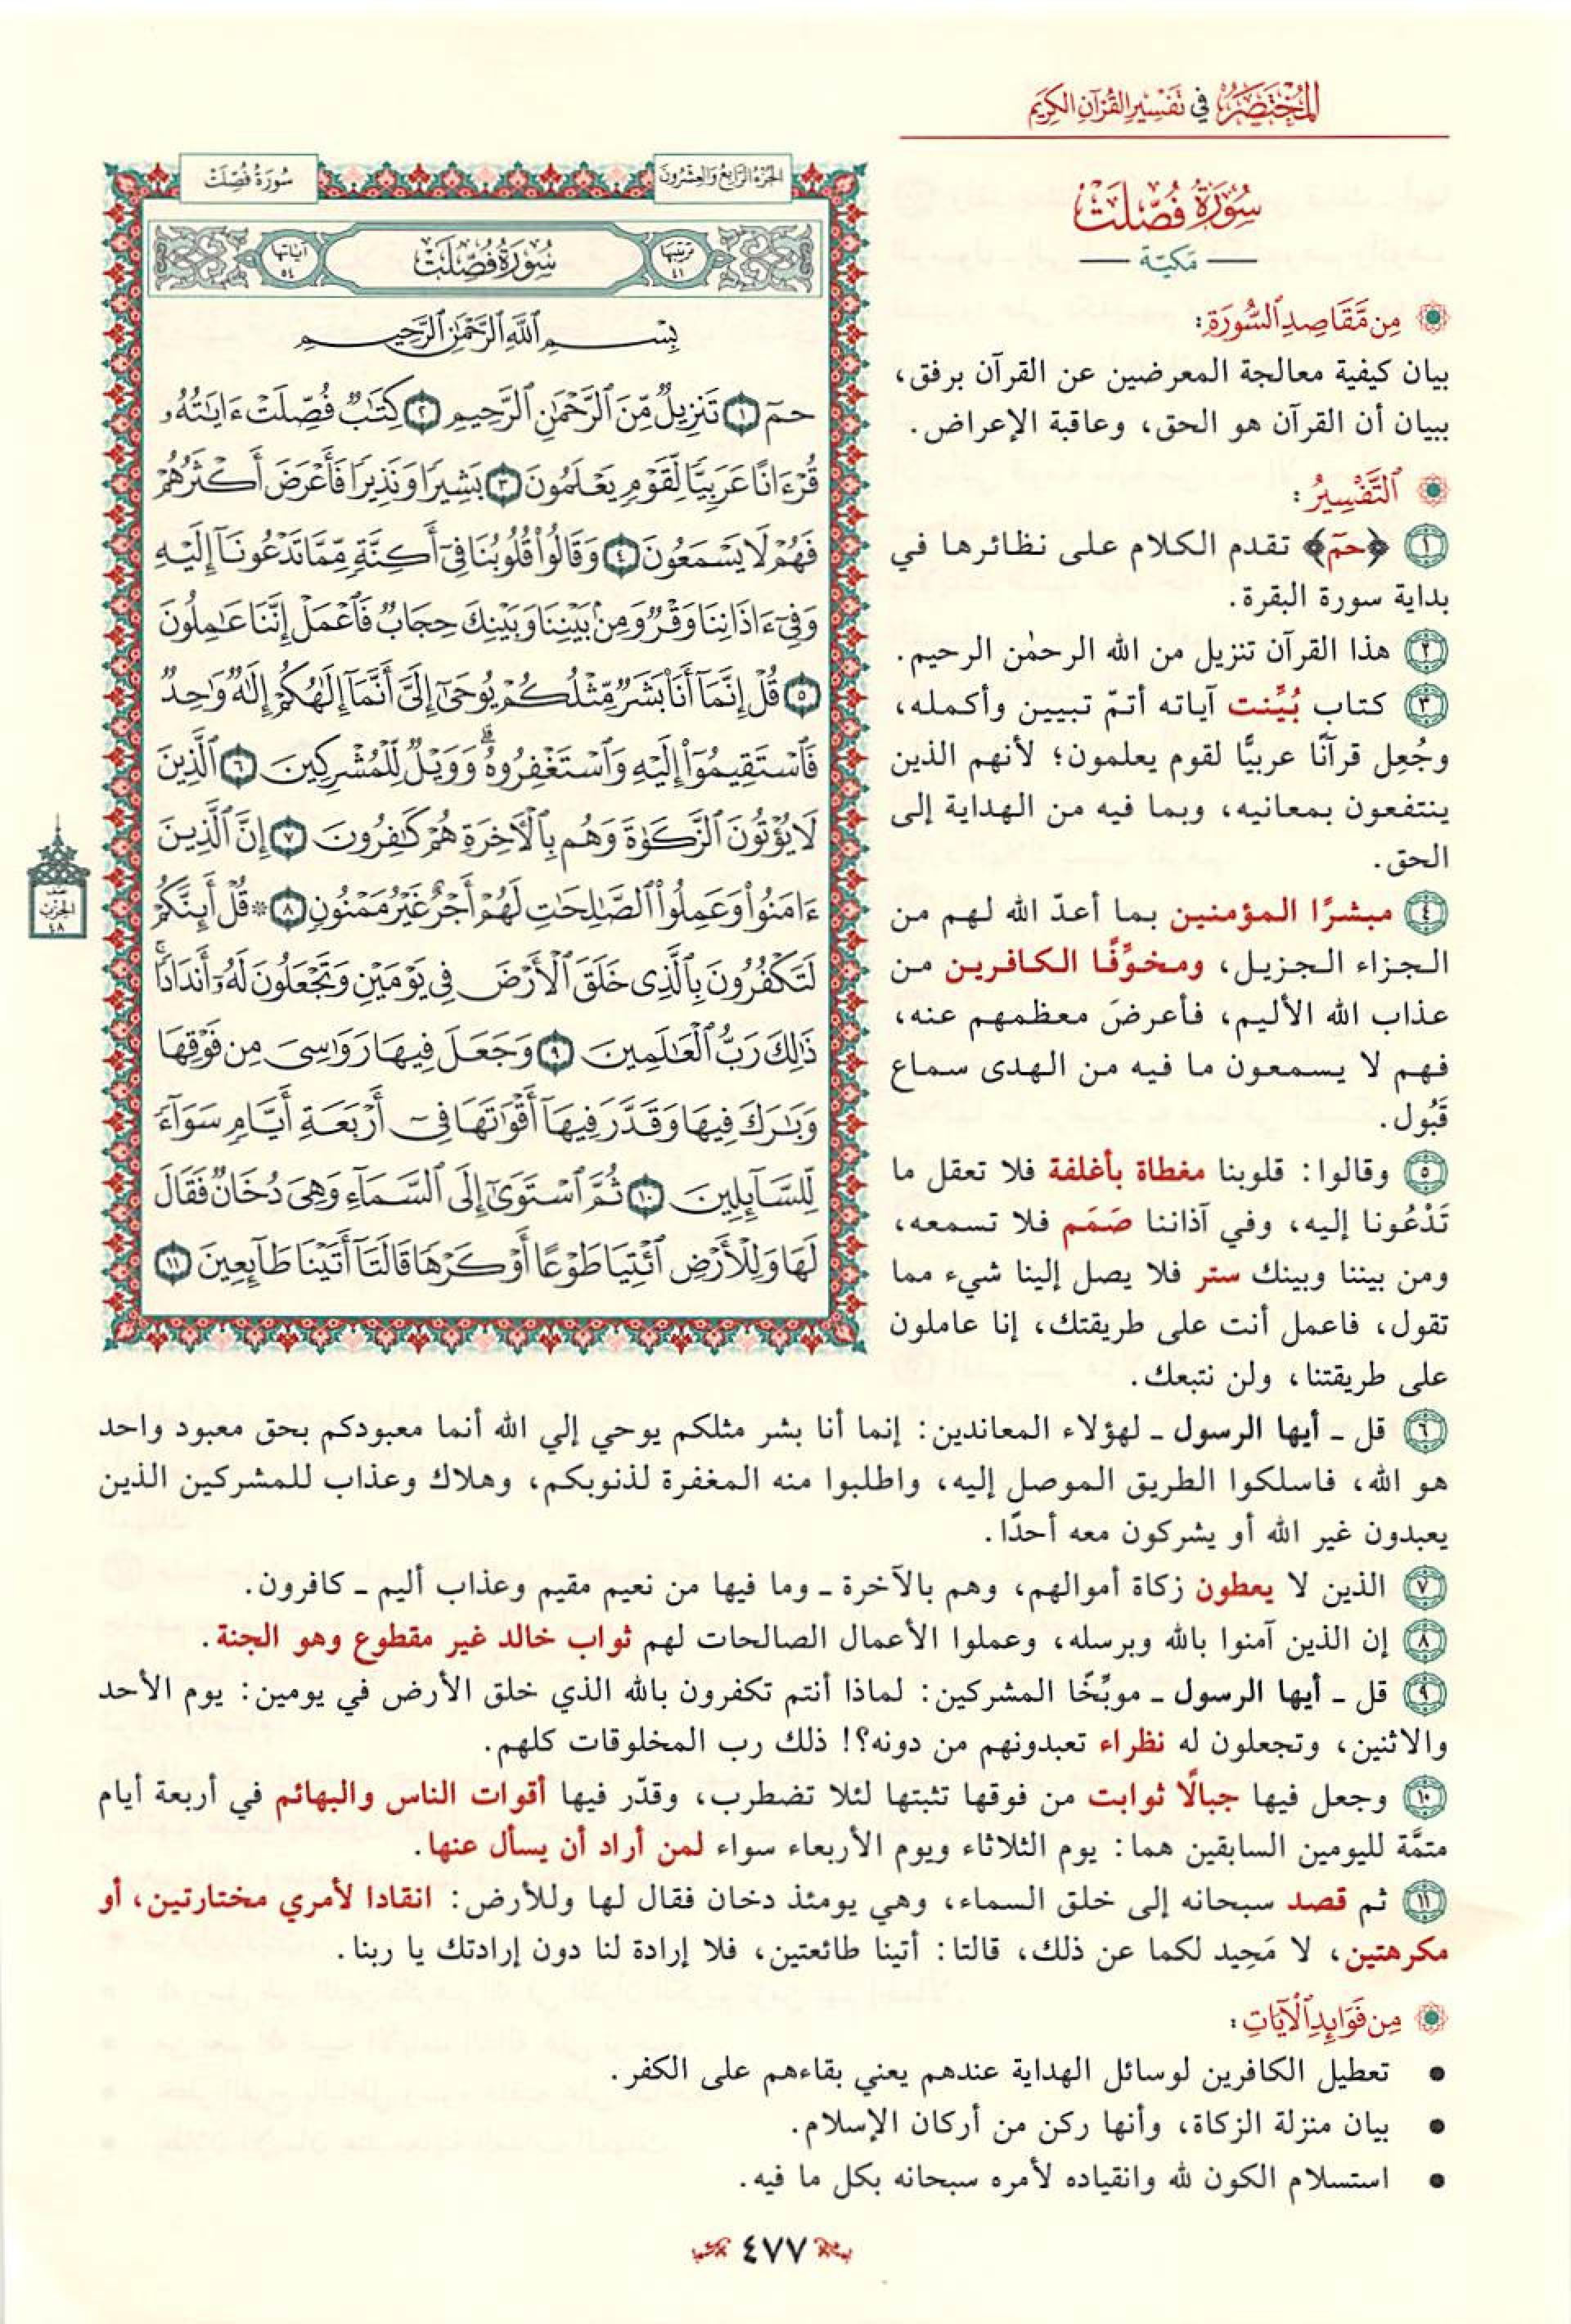 المختصر في تفسير القرآن الكريم
سُورَةُ فُصِّلَتْ
مَكيّة
مِن مَّقَاصِدِ ٱلسُّورَةِ:
بيان كيفية معالجة المعرضين عن القرآن برفق،
ببيان أن القرآن هو الحق، وعاقبة الإعراض.
ٱلتَّفْسِيرُ:
١ ﴿حمٓ﴾ تقدم الكلام على نظائرها في
بداية سورة البقرة.
٢ هذا القرآن تنزيل من الله الرحمٰن الرحيم.
٣ كتاب بُيِّنت آياته أتمّ تبيين وأكمله،
وجُعِل قرآنًا عربيًّا لقوم يعلمون؛ لأنهم الذين
ينتفعون بمعانيه، وبما فيه من الهداية إلى
الحق.
٤ مبشرًا المؤمنين بما أعدّ الله لهم من
الجزاء الجزيل، ومخوِّفًا الكافرين من
عذاب الله الأليم، فأعرضَ معظمهم عنه،
فهم لا يسمعون ما فيه من الهدى سماع
قَبُول.
٥ وقالوا: قلوبنا مغطاة بأغلفة فلا تعقل ما
تَدْعُونا إليه، وفي آذاننا صَمَم فلا تسمعه،
ومن بيننا وبينك ستر فلا يصل إلينا شيء مما
تقول، فاعمل أنت على طريقتك، إنا عاملون
على طريقتنا، ولن نتبعك.
الجُزْءُ الرَّابِعُ وَالعِشْرُونَ
سُورَةُ فُصِّلَتْ
ترتيبها ٤١
سُورَةُ فُصِّلَتْ
آياتها ٥٤
بِسْمِ ٱللَّهِ ٱلرَّحْمَٰنِ ٱلرَّحِيمِ
حمٓ ١ تَنزِيلٌ مِّنَ ٱلرَّحْمَٰنِ ٱلرَّحِيمِ ٢ كِتَٰبٌ فُصِّلَتْ ءَايَٰتُهُۥ
قُرْءَانًا عَرَبِيًّا لِّقَوْمٍ يَعْلَمُونَ ٣ بَشِيرًا وَنَذِيرًا فَأَعْرَضَ أَكْثَرُهُمْ
فَهُمْ لَا يَسْمَعُونَ ٤ وَقَالُوا۟ قُلُوبُنَا فِىٓ أَكِنَّةٍ مِّمَّا تَدْعُونَآ إِلَيْهِ
وَفِىٓ ءَاذَانِنَا وَقْرٌ وَمِنۢ بَيْنِنَا وَبَيْنِكَ حِجَابٌ فَٱعْمَلْ إِنَّنَا عَٰمِلُونَ
٥ قُلْ إِنَّمَآ أَنَا۠ بَشَرٌ مِّثْلُكُمْ يُوحَىٰٓ إِلَىَّ أَنَّمَآ إِلَٰهُكُمْ إِلَٰهٌ وَٰحِدٌ
فَٱسْتَقِيمُوٓا۟ إِلَيْهِ وَٱسْتَغْفِرُوهُ ۗ وَوَيْلٌ لِّلْمُشْرِكِينَ ٦ ٱلَّذِينَ
لَا يُؤْتُونَ ٱلزَّكَوٰةَ وَهُم بِٱلْءَاخِرَةِ هُمْ كَٰفِرُونَ ٧ إِنَّ ٱلَّذِينَ
ءَامَنُوا۟ وَعَمِلُوا۟ ٱلصَّٰلِحَٰتِ لَهُمْ أَجْرٌ غَيْرُ مَمْنُونٍ ٨ ۞ قُلْ أَئِنَّكُمْ
لَتَكْفُرُونَ بِٱلَّذِى خَلَقَ ٱلْأَرْضَ فِى يَوْمَيْنِ وَتَجْعَلُونَ لَهُۥٓ أَندَادًا ۚ
ذَٰلِكَ رَبُّ ٱلْعَٰلَمِينَ ٩ وَجَعَلَ فِيهَا رَوَٰسِىَ مِن فَوْقِهَا
وَبَٰرَكَ فِيهَا وَقَدَّرَ فِيهَآ أَقْوَٰتَهَا فِىٓ أَرْبَعَةِ أَيَّامٍ سَوَآءً
لِّلسَّآئِلِينَ ١٠ ثُمَّ ٱسْتَوَىٰٓ إِلَى ٱلسَّمَآءِ وَهِىَ دُخَانٌ فَقَالَ
لَهَا وَلِلْأَرْضِ ٱئْتِيَا طَوْعًا أَوْ كَرْهًا قَالَتَآ أَتَيْنَا طَآئِعِينَ ١١
نصف
الحزب
٤٨
٦ قل ـ أيها الرسول ـ لهؤلاء المعاندين: إنما أنا بشر مثلكم يوحي إلي الله أنما معبودكم بحق معبود واحد
هو الله، فاسلكوا الطريق الموصل إليه، واطلبوا منه المغفرة لذنوبكم، وهلاك وعذاب للمشركين الذين
يعبدون غير الله أو يشركون معه أحدًا.
٧ الذين لا يعطون زكاة أموالهم، وهم بالآخرة ـ وما فيها من نعيم مقيم وعذاب أليم ـ كافرون.
٨ إن الذين آمنوا بالله وبرسله، وعملوا الأعمال الصالحات لهم ثواب خالد غير مقطوع وهو الجنة.
٩ قل ـ أيها الرسول ـ موبِّخًا المشركين: لماذا أنتم تكفرون بالله الذي خلق الأرض في يومين: يوم الأحد
والاثنين، وتجعلون له نظراء تعبدونهم من دونه؟! ذلك رب المخلوقات كلهم.
١٠ وجعل فيها جبالًا ثوابت من فوقها تثبتها لئلا تضطرب، وقدّر فيها أقوات الناس والبهائم في أربعة أيام
متمَّة لليومين السابقين هما: يوم الثلاثاء ويوم الأربعاء سواء لمن أراد أن يسأل عنها.
١١ ثم قصد سبحانه إلى خلق السماء، وهي يومئذ دخان فقال لها وللأرض: انقادا لأمري مختارتين، أو
مكرهتين، لا مَحِيد لكما عن ذلك، قالتا: أتينا طائعتين، فلا إرادة لنا دون إرادتك يا ربنا.
مِن فَوَائِدِ ٱلْآيَاتِ:
• تعطيل الكافرين لوسائل الهداية عندهم يعني بقاءهم على الكفر.
• بيان منزلة الزكاة، وأنها ركن من أركان الإسلام.
• استسلام الكون لله وانقياده لأمره سبحانه بكل ما فيه.
٤٧٧